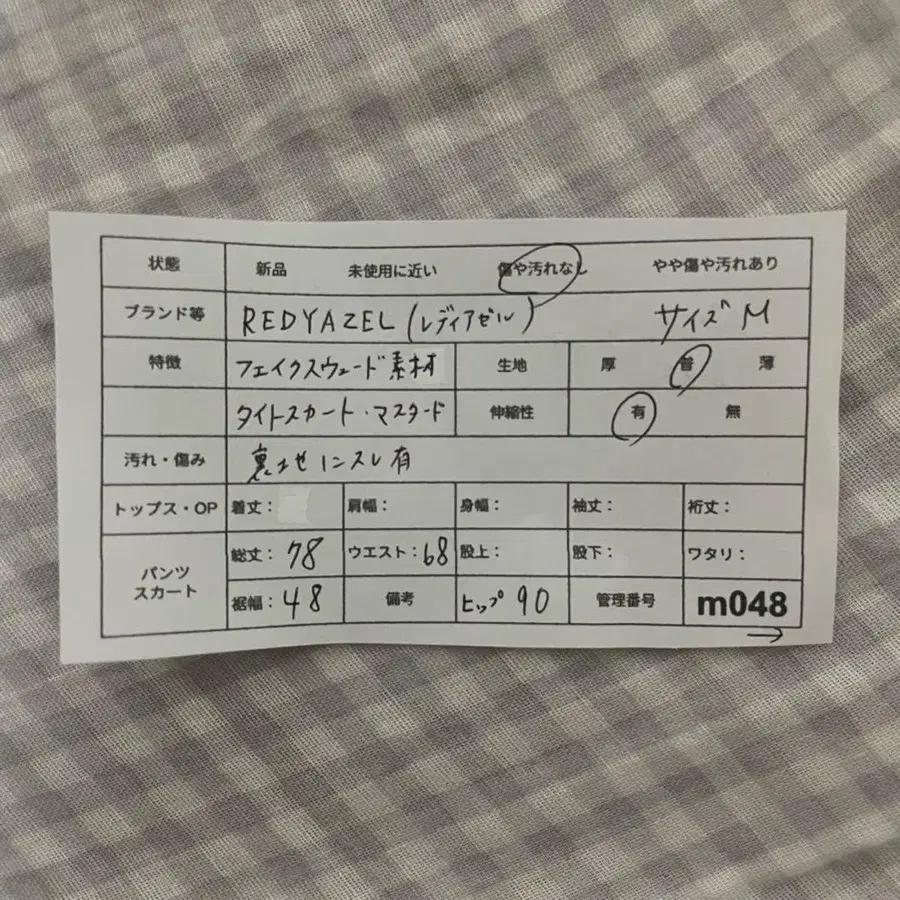 状態 新品 未使用に近い 傷や汚れなし やや傷や汚れあり
ブランド等 REDYAZEL(レディアゼル) サイズM
特徴 フェイクスウェード素材 生地 厚 普 薄
タイトスカート・マスタード 伸縮性 有 無
汚れ・傷み 裏地にスレ有
トップス・OP 着丈: 肩幅: 身幅: 袖丈: 裄丈:
パンツ スカート 総丈:78 ウエスト:68 股上: 股下: ワタリ:
裾幅:48 備考 ヒップ90 管理番号 m048
→